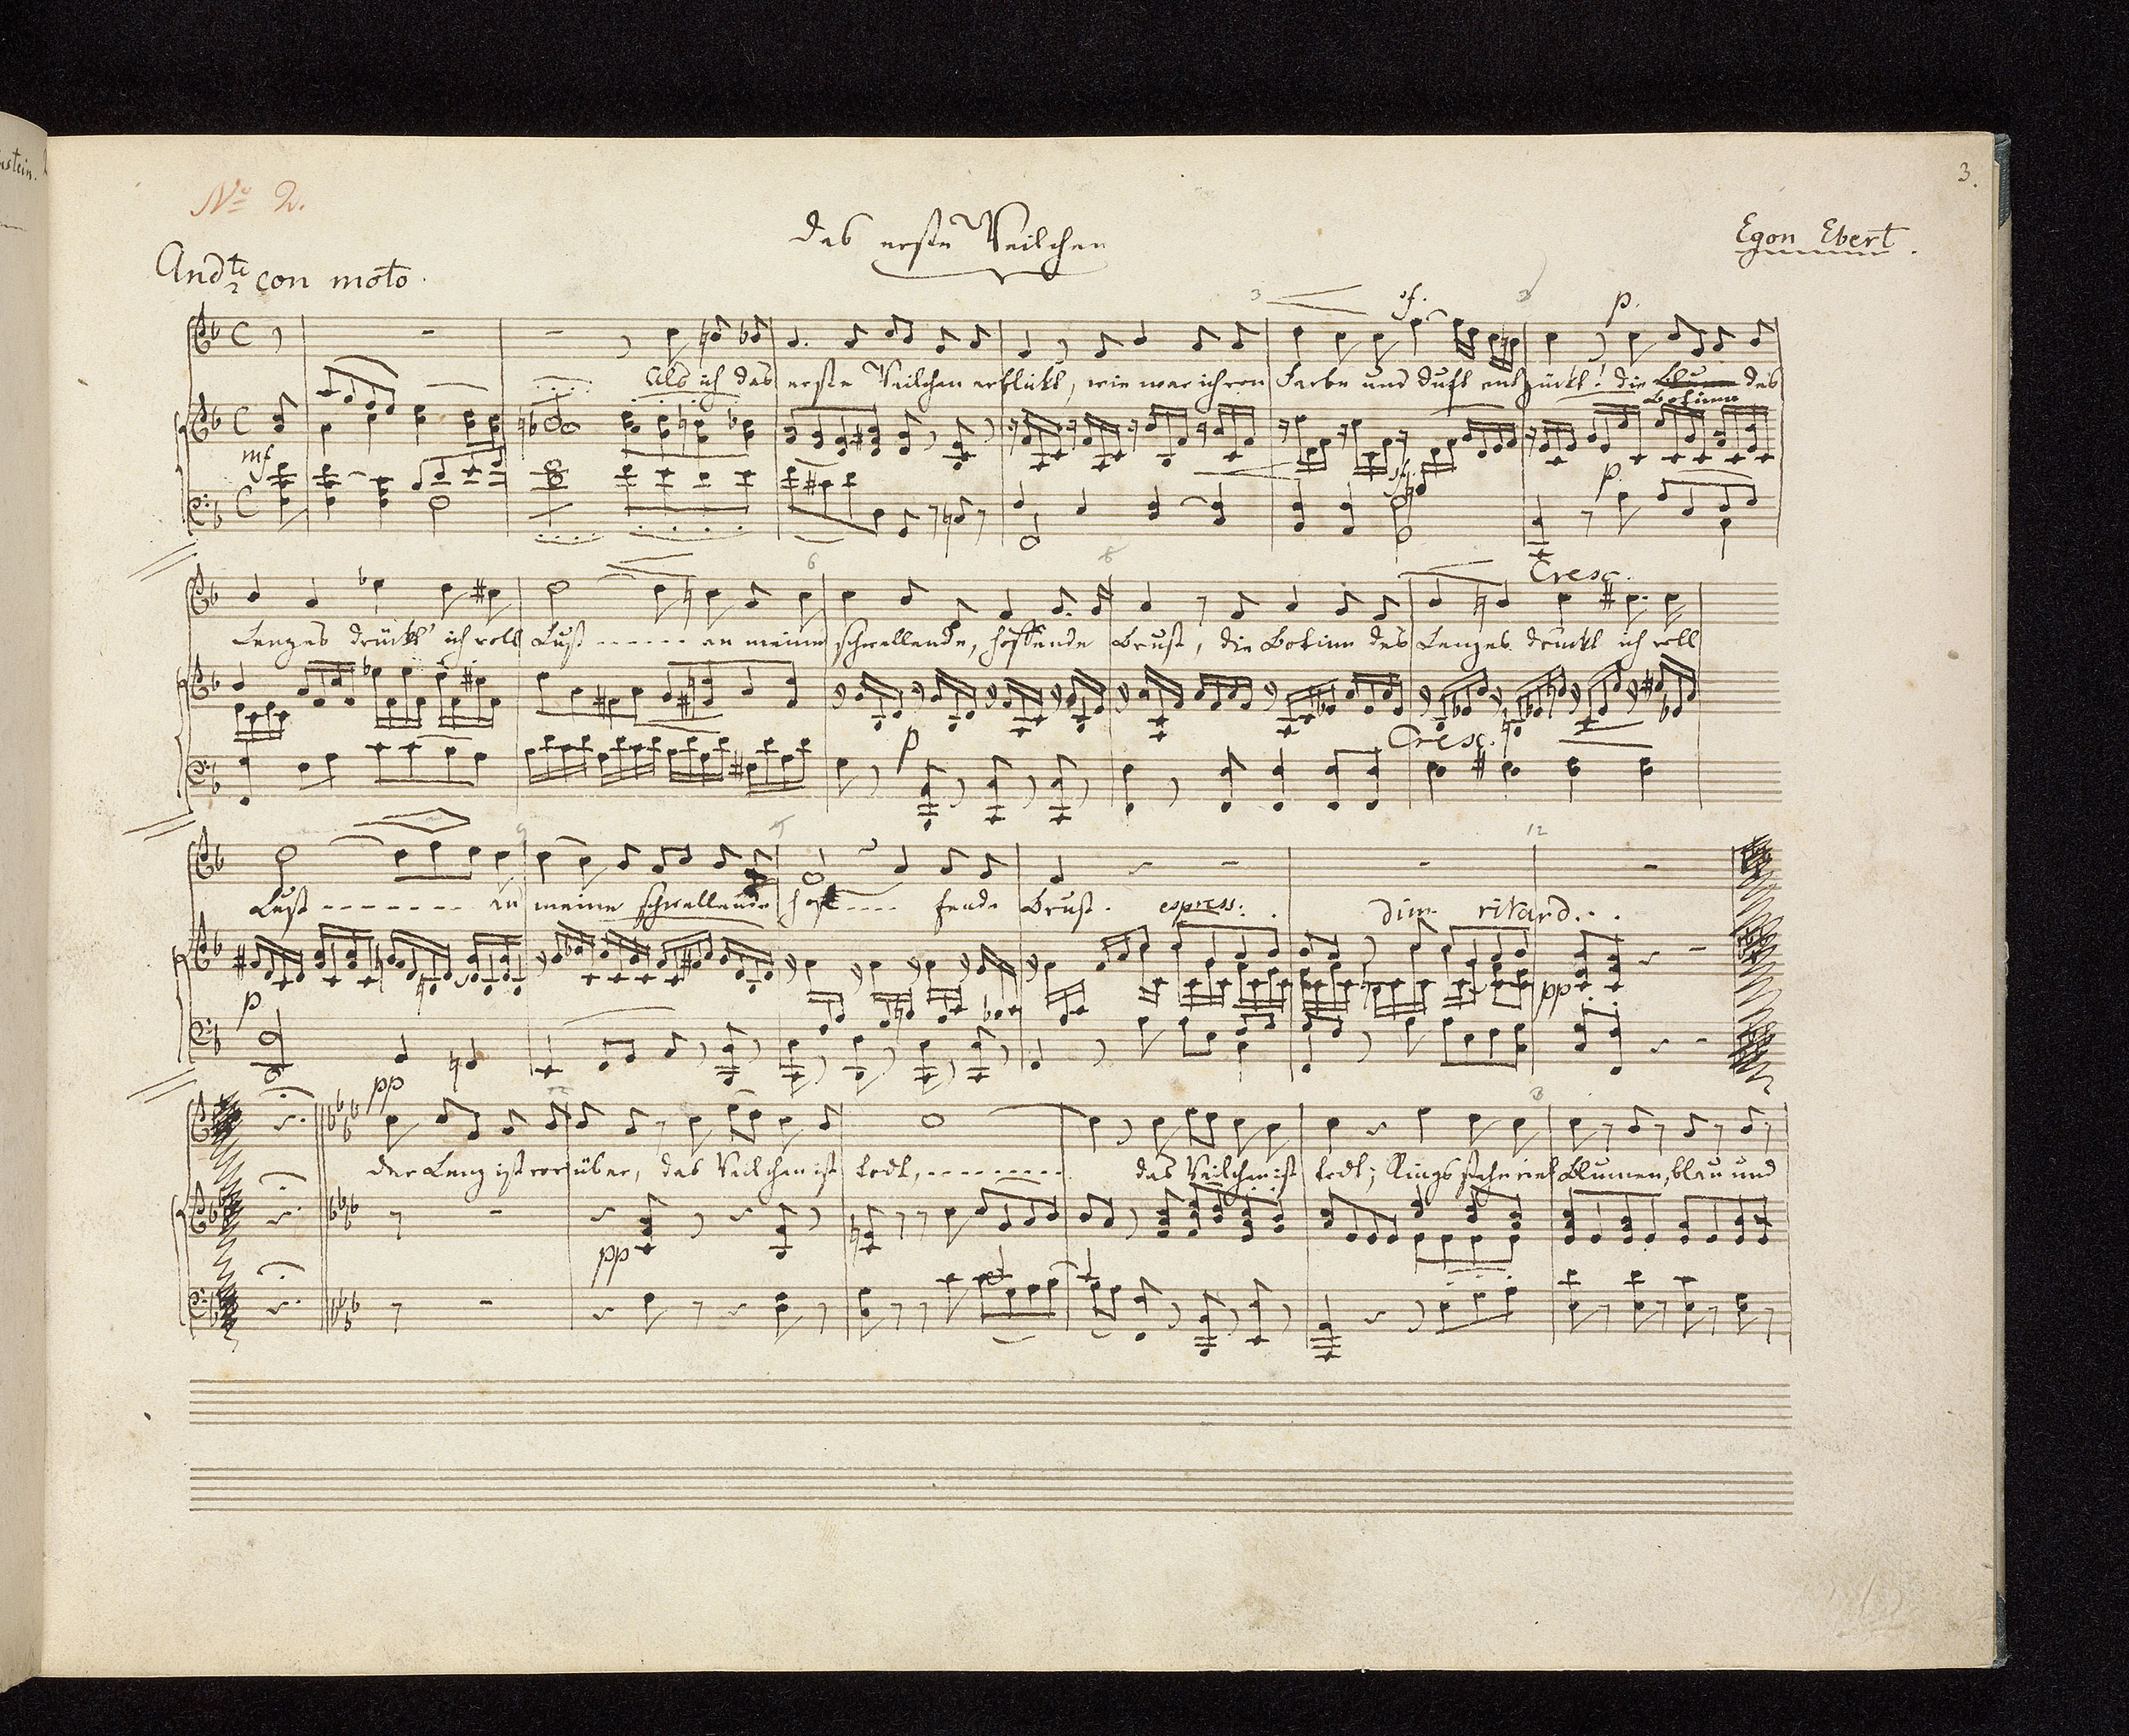 3.
No 2.
Das erste Veilchen
Egon Ebert.
Andte con moto.
3 sf. p.
Als ich das erste Veilchen erblickt, wie war ich von Farbe und Duft entzückt! die Blum des
Botinn
mf sf p.
6 8 Cresc.
Lenzes drückt' ich voll Lust ------ an meine schwellende, hoffende Brust, die Botinn des Lenzes drückt ich voll
p Cresc.
9 12
Lust ------- an meine schwellende hof---- fende Brust. espress. dim. ritard. . .
p pp
pp
Der Lenz ist vorüber, das Veilchen ist todt, --------- das Veilchen ist todt; Rings stehn viel Blumen, blau und
pp